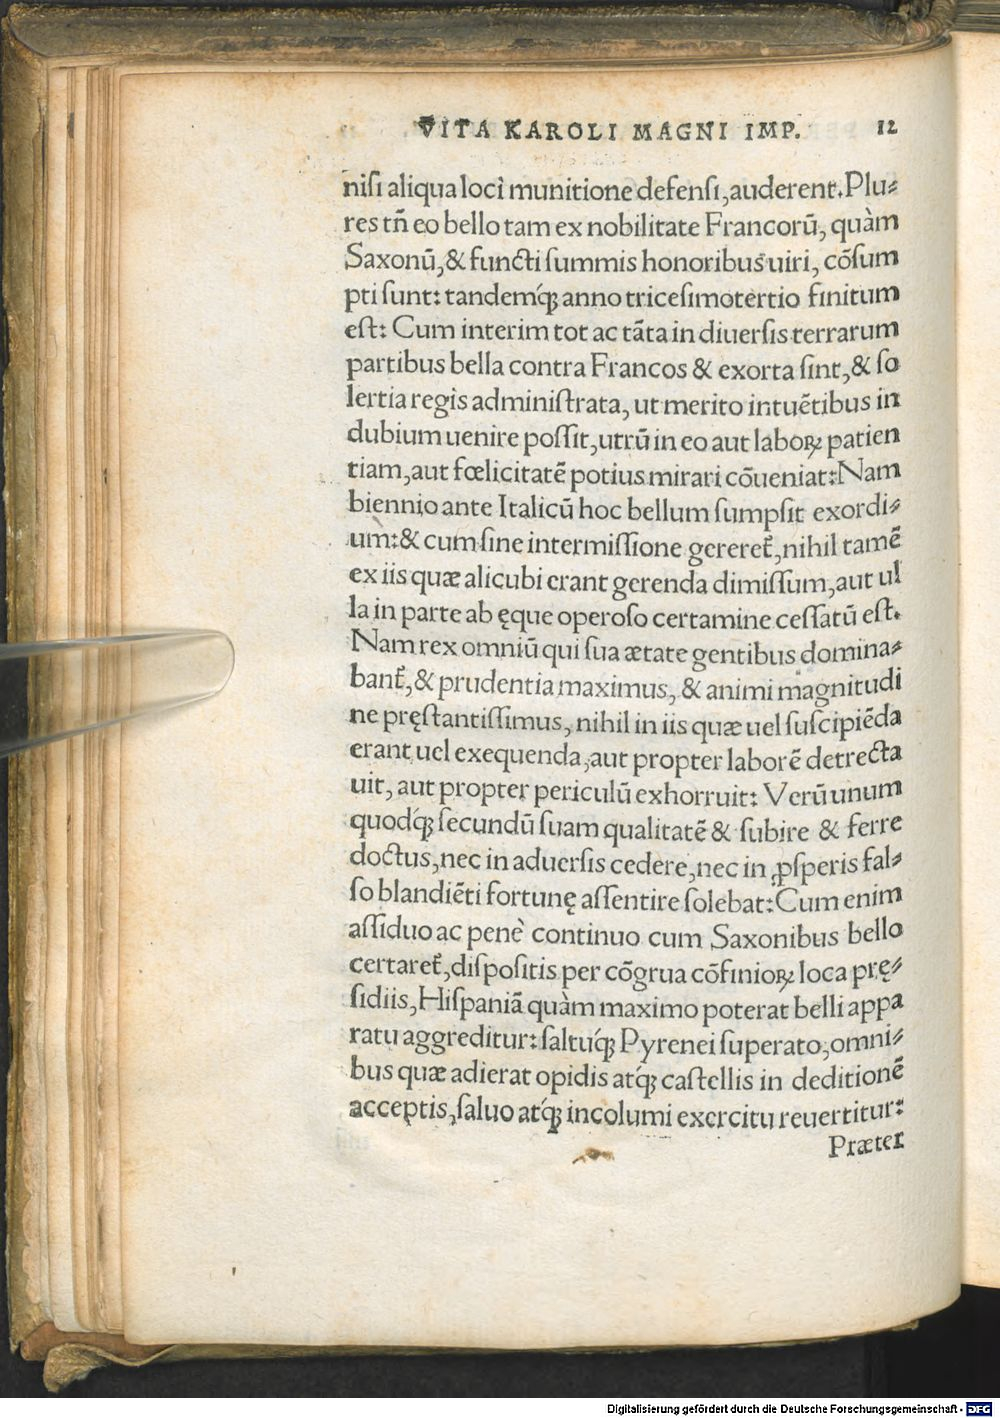 VITA KAROLI MAGNI IMP. 12
niſi aliqua loci munitione defenſi, auderent. Plu⸗
res tñ eo bello tam ex nobilitate Francorū, quàm
Saxonū, & functi ſummis honoribus uiri, cōſum
pti ſunt: tandemq́ꝫ anno triceſimotertio finitum
eſt: Cum interim tot ac tāta in diuerſis terrarum
partibus bella contra Francos & exorta ſint, & ſo
lertia regis adminiſtrata, ut merito intuētibus in
dubium uenire poſſit, utrū in eo aut laboꝝ patien
tiam, aut fœlicitatē potius mirari cōueniat: Nam
biennio ante Italicū hoc bellum ſumpſit exordi⸗
um: & cum ſine intermiſſione gereret᷑, nihil tamē
ex iis quæ alicubi erant gerenda dimiſſum, aut ul
la in parte ab ęque operoſo certamine ceſſatū eſt.
Nam rex omniū qui ſua ætate gentibus domina⸗
bant᷑, & prudentia maximus, & animi magnitudi
ne pręſtantiſſimus, nihil in iis quæ uel ſuſcipiēda
erant uel exequenda, aut propter laborē detrecta
uit, aut propter periculū exhorruit: Verū unum
quodq́ꝫ ſecundū ſuam qualitatē & ſubire & ferre
doctus, nec in aduerſis cedere, nec in ꝓſperis fal⸗
ſo blandiēti fortunę aſſentire ſolebat: Cum enim
aſſiduo ac penè continuo cum Saxonibus bello
certaret᷑, diſpoſitis per cōgrua cōfinioꝝ loca prę⸗
ſidiis, Hiſpaniā quàm maximo poterat belli appa
ratu aggreditur: ſaltuq́ꝫ Pyrenei ſuperato, omni⸗
bus quæ adierat opidis atq́ꝫ caſtellis in deditionē
acceptis, ſaluo atq́ꝫ incolumi exercitu reuertitur:
Præter
Digitalisierung gefördert durch die Deutsche Forschungsgemeinschaft - DFG